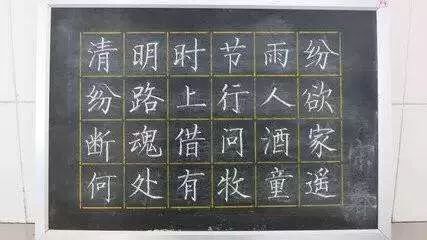 清明时节雨纷
纷路上行人欲
断魂借问酒家
何处有牧童遥